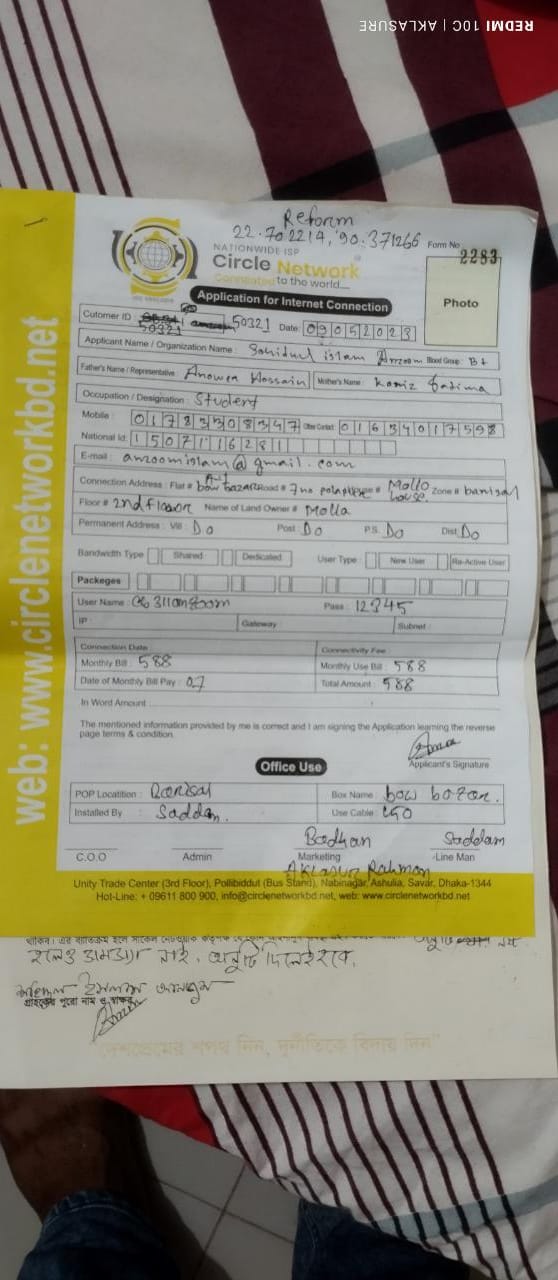 REDMI 10C | AKLASURE
Reform
22.702214, 90.371266
Form No 2283
NATIONWIDE ISP
Circle Network
Connected to the world...
Photo
Application for Internet Connection
Cutomer ID : 50321 50321 Date: 09052023
Applicant Name / Organization Name : Sohidul islam Anzoom Blood Group: B+
Father's Name / Representative : Anowar Hossain Mother's Name : Kaniz fatima
Occupation / Designation : Student
Mobile : 01783308347 Other Contact: 01634017598
National Id: 1507116281
E-mail : anzoomislam@gmail.com
Connection Address: Flat # bow bazar Road # 7no House # Mollo house Zone # barisal
Floor # 2nd Floor Name of Land Owner # Molla
Permanent Address : Vill : Do Post Do P.S. Do Dist. Do
Bandwidth Type Shared Dedicated User Type : New User Re-Active User
Packeges
User Name : Pass : 12345
IP : Gateway : Subnet :
Connection Date Connectivity Fee :
Monthly Bill : 588 Monthly Use Bill : 588
Date of Monthly Bill Pay : 07 Total Amount : 588
In Word Amount :
The mentioned information provided by me is correct and I am signing the Application learning the reverse
page terms & condition.
Applicant's Signature
Office Use
POP Locatition : Barisal Box Name : bow bozar.
Installed By : Saddam. Use Cable :
Badhan Saddam
C.O.O Admin Marketing Line Man
Aklasur Rahman
Unity Trade Center (3rd Floor), Pollibiddut (Bus Stand), Nabinagar, Ashulia, Savar, Dhaka-1344
Hot-Line: + 09611 800 900, info@circlenetworkbd.net, web: www.circlenetworkbd.net
web: www.circlenetworkbd.net
গ্রাহকের পুরো নাম ও স্বাক্ষর
"দেশপ্রেমের শপথ নিন, দুর্নীতিকে বিদায় দিন"